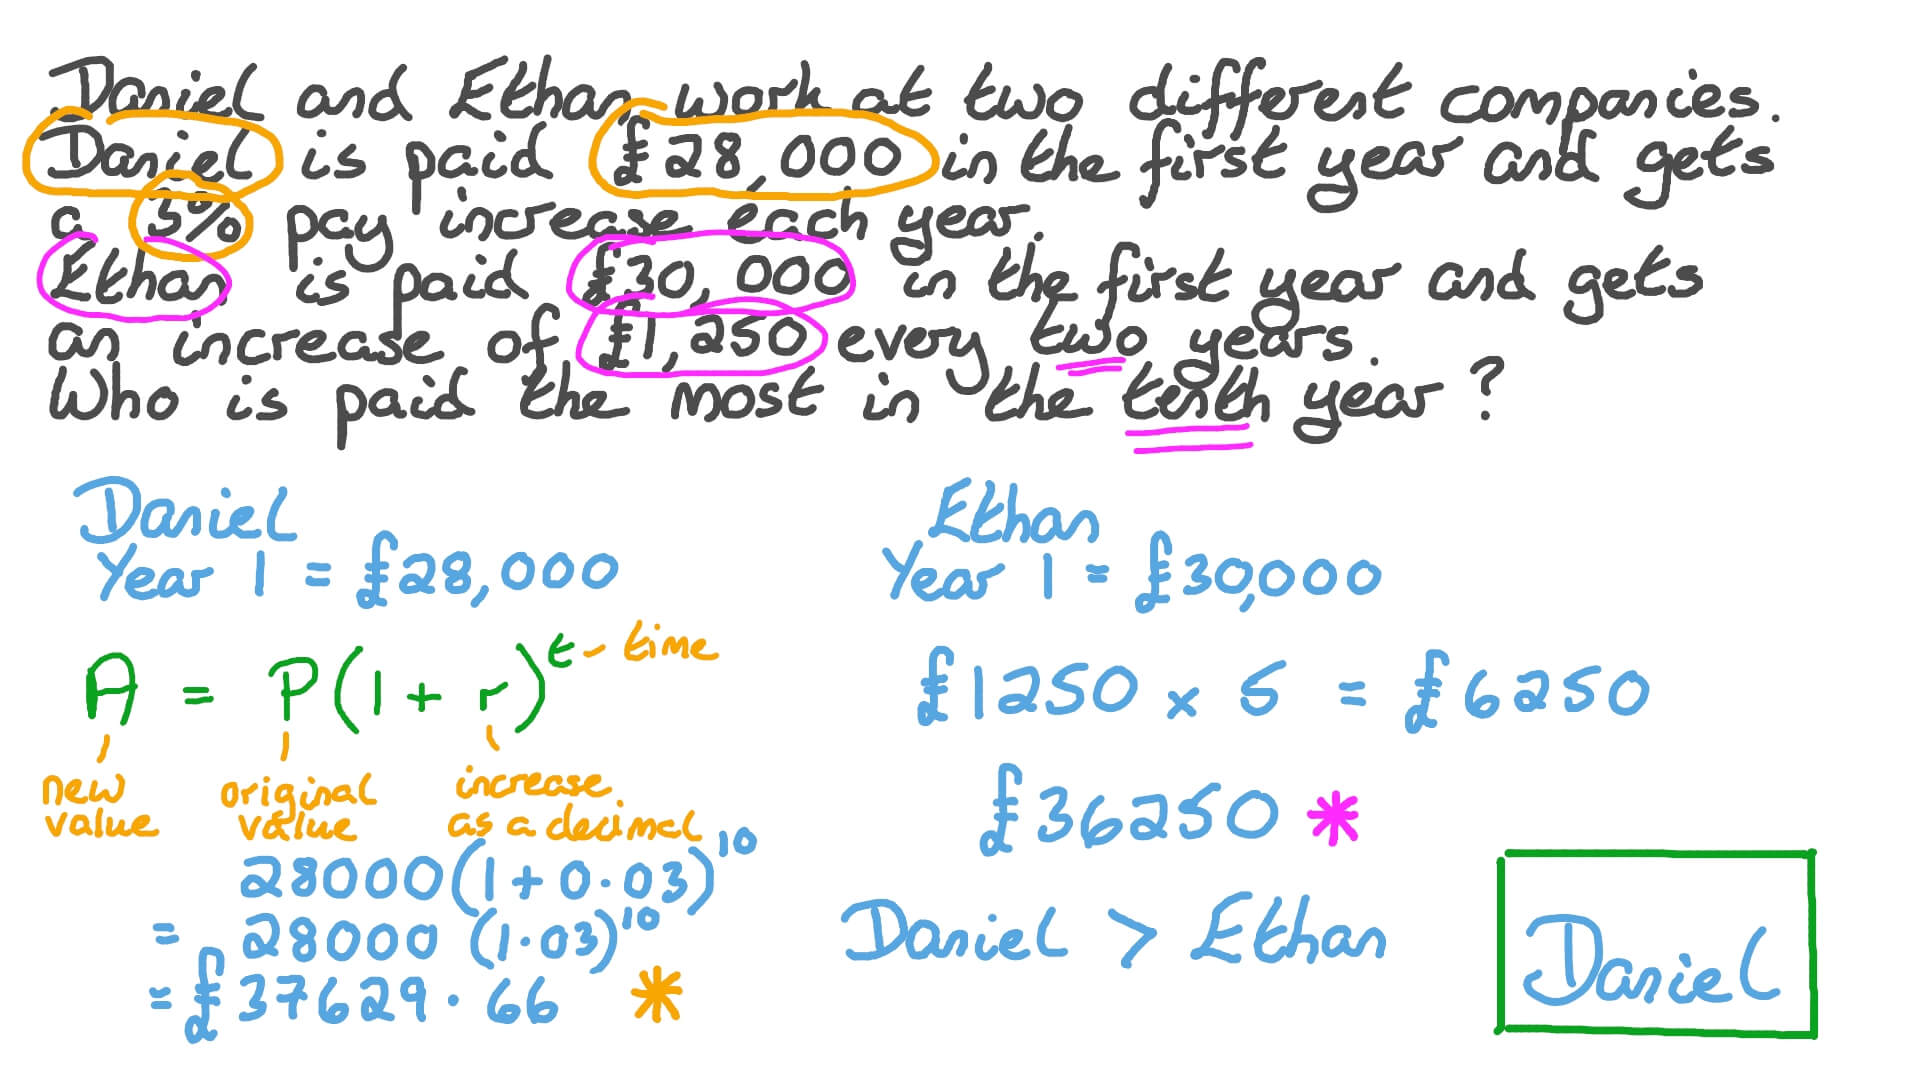 Daniel and Ethan work at two different companies.
Daniel is paid £28,000 in the first year and gets
a 3% pay increase each year.
Ethan is paid £30,000 in the first year and gets
an increase of £1,250 every two years.
Who is paid the most in the tenth year?
Daniel
Year 1 = £28,000
A = P(1 + r)^t - time
new value
original value
increase as a decimal
28000(1 + 0.03)^10
= 28000 (1.03)^10
= £37629.66 *
Ethan
Year 1 = £30,000
£1250 × 5 = £6250
£36250 *
Daniel > Ethan
Daniel